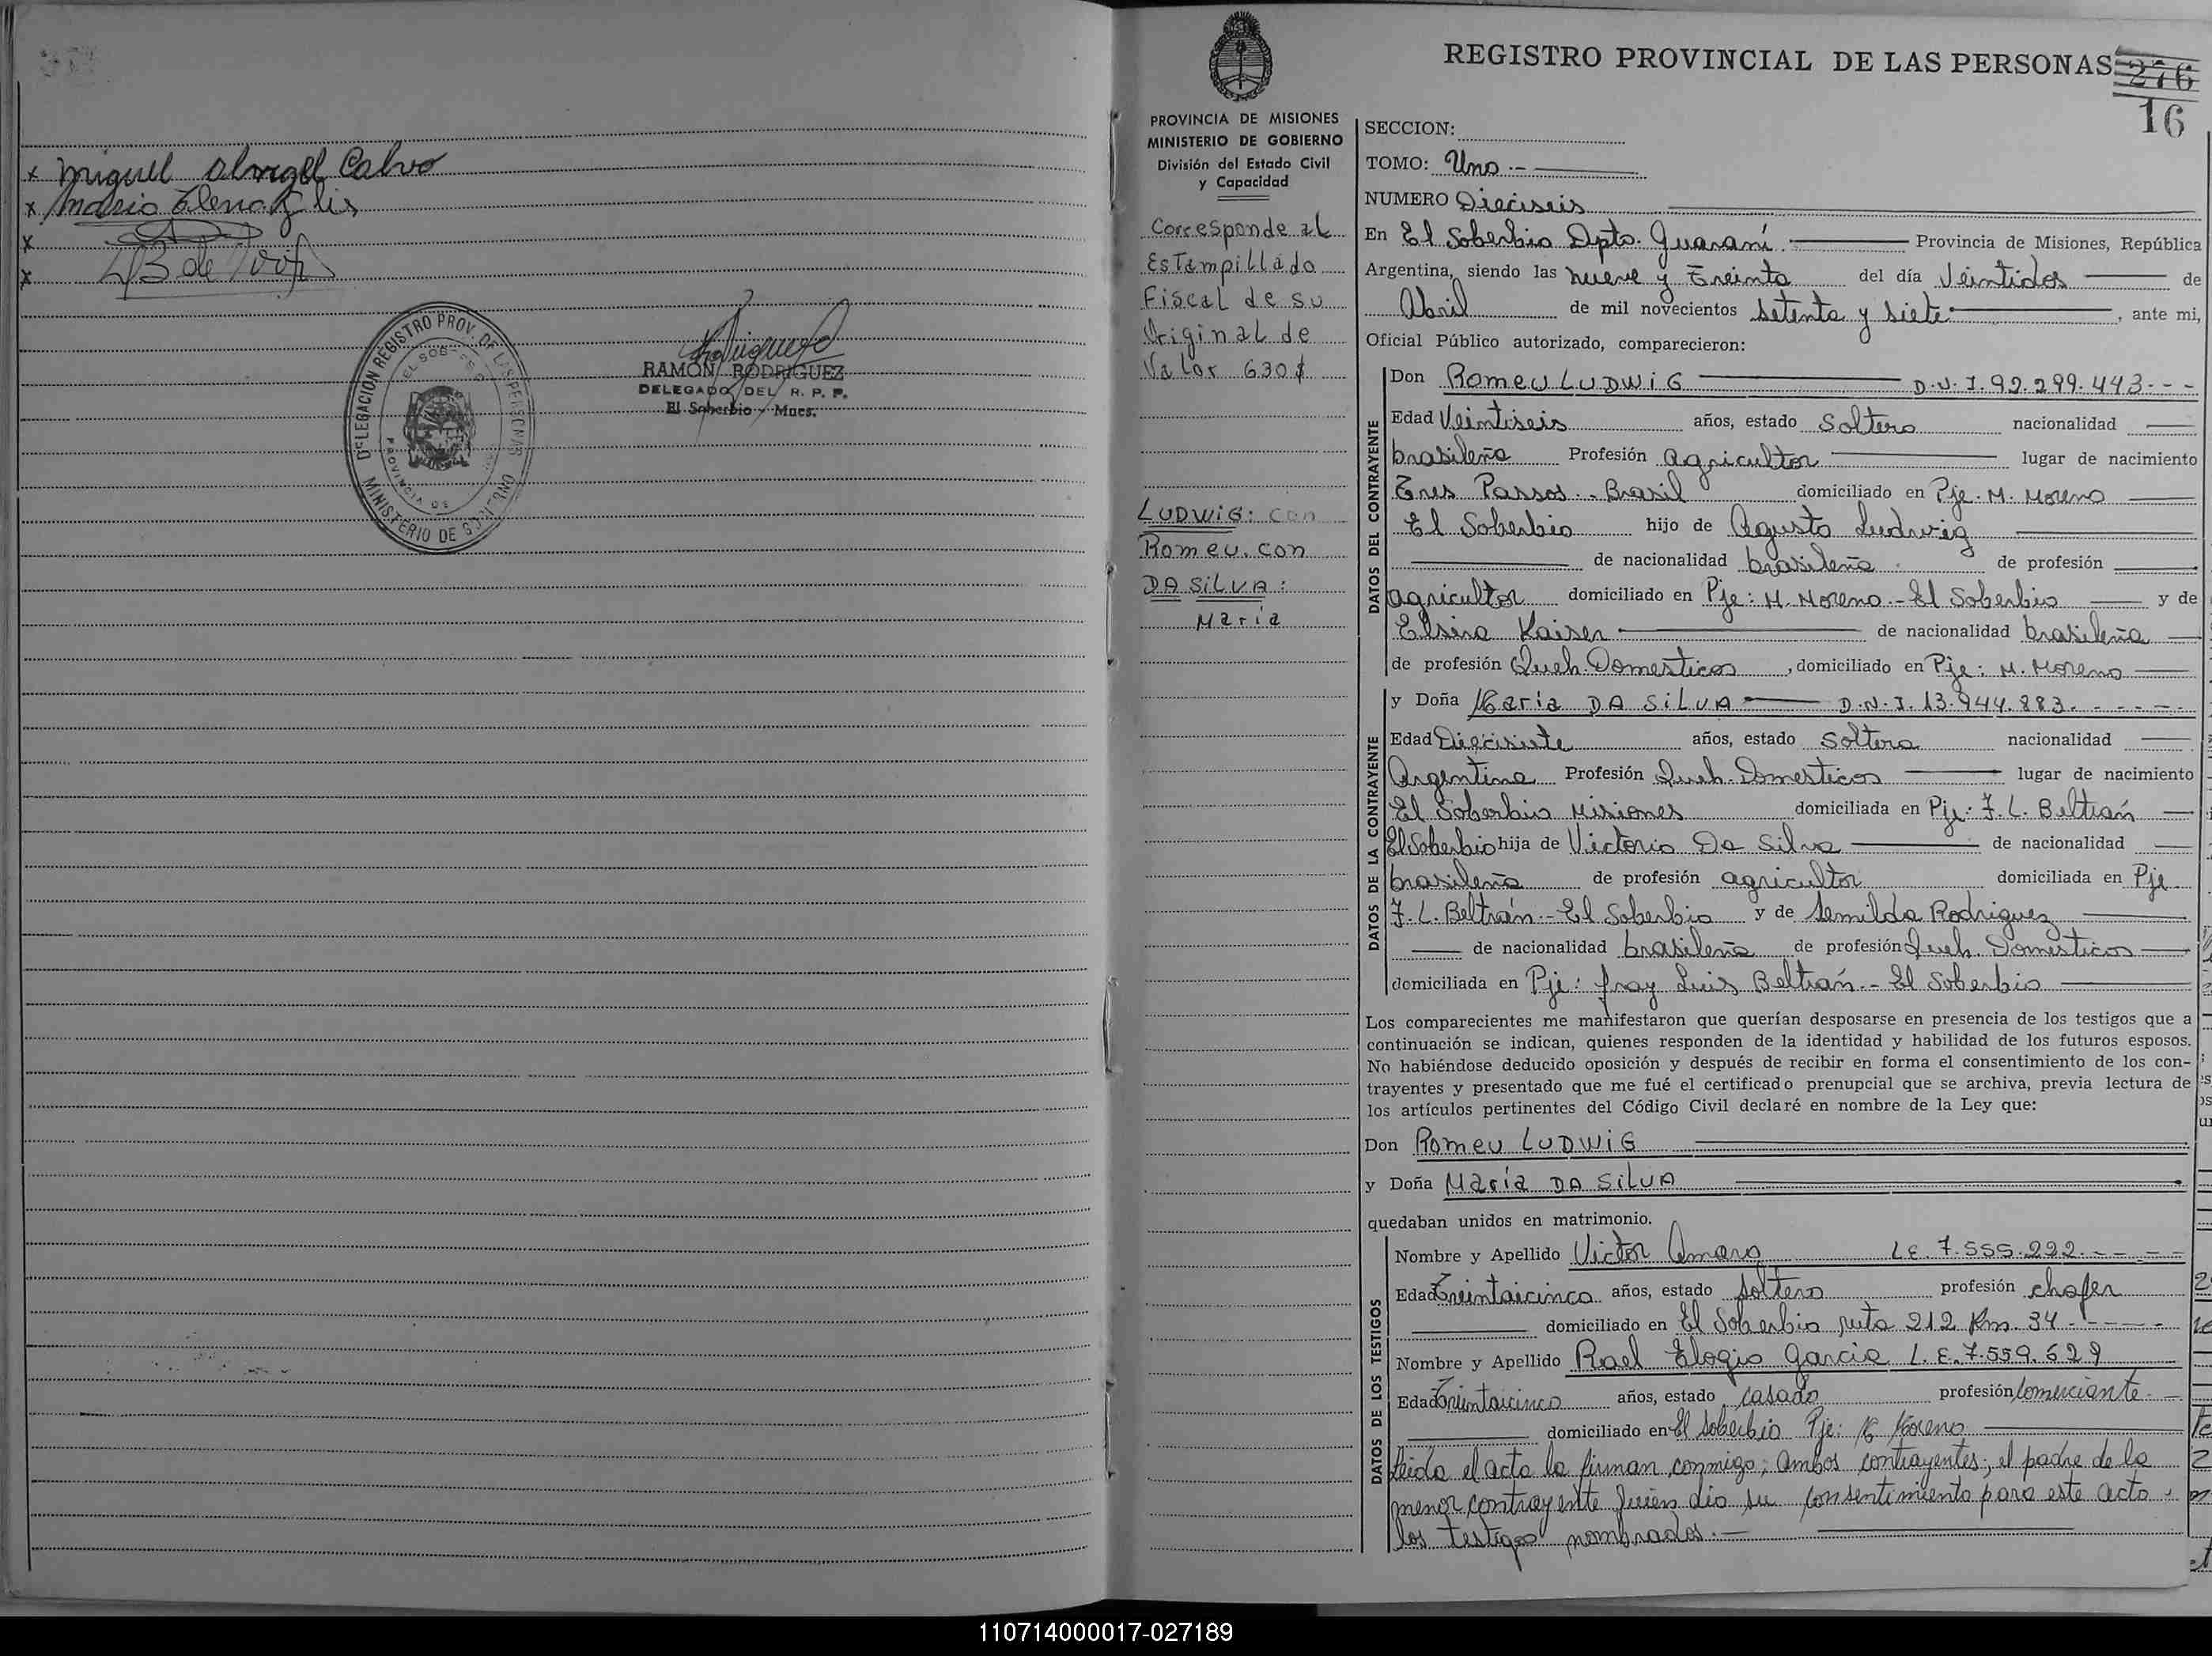 x Miguel Angel Calvo
x Maria Elena
x
x
DELEGACION REGISTRO PROV. DE LAS PERSONAS
MINISTERIO DE
PROVINCIA DE
RAMON RODRIGUEZ
DELEGADO DEL R. P. P.
El Soberbio - Mnes.
REGISTRO PROVINCIAL DE LAS PERSONAS
276
16
PROVINCIA DE MISIONES
MINISTERIO DE GOBIERNO
División del Estado Civil
y Capacidad
Corresponde al
Estampillado
Fiscal de su
Original de
Valor 630$
LUDWIG: con
Romeu. con
DA SILVA:
María
SECCION:
TOMO: Uno.-
NUMERO Dieciseis
En El Soberbio Dpto. Guaraní. Provincia de Misiones, República
Argentina, siendo las nueve y Treinta del día Veintidos de
Abril de mil novecientos setenta y siete, ante mi,
Oficial Público autorizado, comparecieron:
DATOS DEL CONTRAYENTE
Don Romeu LUDWIG D.N.I. 92.299.443.---
Edad Veintiseis años, estado Soltero nacionalidad
brasileña Profesión agricultor lugar de nacimiento
Tres Passos.- Brasil domiciliado en Pje. M. Moreno
El Soberbio hijo de Agusto Ludwig
de nacionalidad brasileña de profesión
agricultor domiciliado en Pje: M. Moreno.- El Soberbio y de
Elsira Kaiser de nacionalidad brasileña
de profesión Queh. Domesticos, domiciliado en Pje: M. Moreno
DATOS DE LA CONTRAYENTE
y Doña María DA SILVA D.N.I. 13.944.883.-----
Edad Diecisiete años, estado Soltera nacionalidad
Argentina Profesión Queh. Domesticos lugar de nacimiento
El Soberbio Misiones domiciliada en Pje: F. L. Beltrán
El Soberbio hija de Victorio Da Silva de nacionalidad
brasileña de profesión agricultor domiciliada en Pje
F. L. Beltrán.- El Soberbio y de Semilda Rodriguez
de nacionalidad brasileña de profesión Queh. Domesticos
domiciliada en Pje: fray Luis Beltrán.- El Soberbio
Los comparecientes me manifestaron que querían desposarse en presencia de los testigos que a
continuación se indican, quienes responden de la identidad y habilidad de los futuros esposos.
No habiéndose deducido oposición y después de recibir en forma el consentimiento de los con-
trayentes y presentado que me fué el certificado prenupcial que se archiva, previa lectura de
los artículos pertinentes del Código Civil declaré en nombre de la Ley que:
Don Romeu LUDWIG
y Doña María DA SILVA
quedaban unidos en matrimonio.
DATOS DE LOS TESTIGOS
Nombre y Apellido Victor Amaro LE. 7.555.222.----
Edad Treintaicinco años, estado Soltero profesión chofer
domiciliado en El Soberbio ruta 212 Km. 34-----
Nombre y Apellido Rael Elogio Garcia L.E. 7.559.629
Edad Treintaicinco años, estado casado profesión Comerciante.
domiciliado en El Soberbio Pje: M. Moreno
Leida el acta la firman conmigo; ambos contrayentes; el padre de la
menor contrayente Quien dio su consentimiento para este acto,
los testigos nombrados.-
110714000017-027189